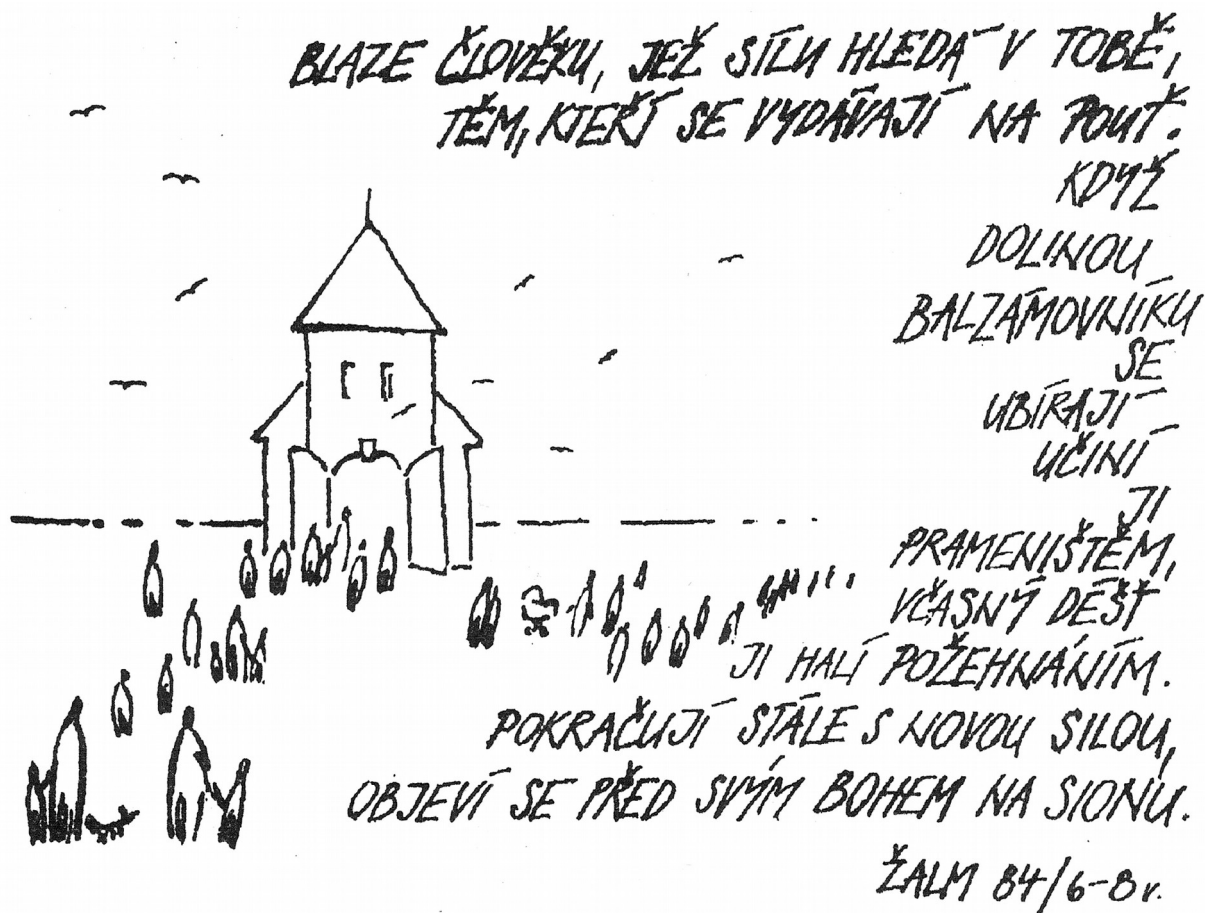 BLAZE ČLOVĚKU, JEŽ SÍLU HLEDÁ V TOBĚ,
TĚM, KTEŘÍ SE VYDÁVAJÍ NA POUŤ.
KDYŽ
DOLINOU
BALZÁMOVNÍKU
SE
UBÍRAJÍ
UČINÍ
JI
PRAMENIŠTĚM,
VČASNÝ DÉŠŤ
JI HALÍ POŽEHNÁNÍM.
POKRAČUJÍ STÁLE S NOVOU SILOU,
OBJEVÍ SE PŘED SVÝM BOHEM NA SIONU.
ŽALM 84/6-8 v.